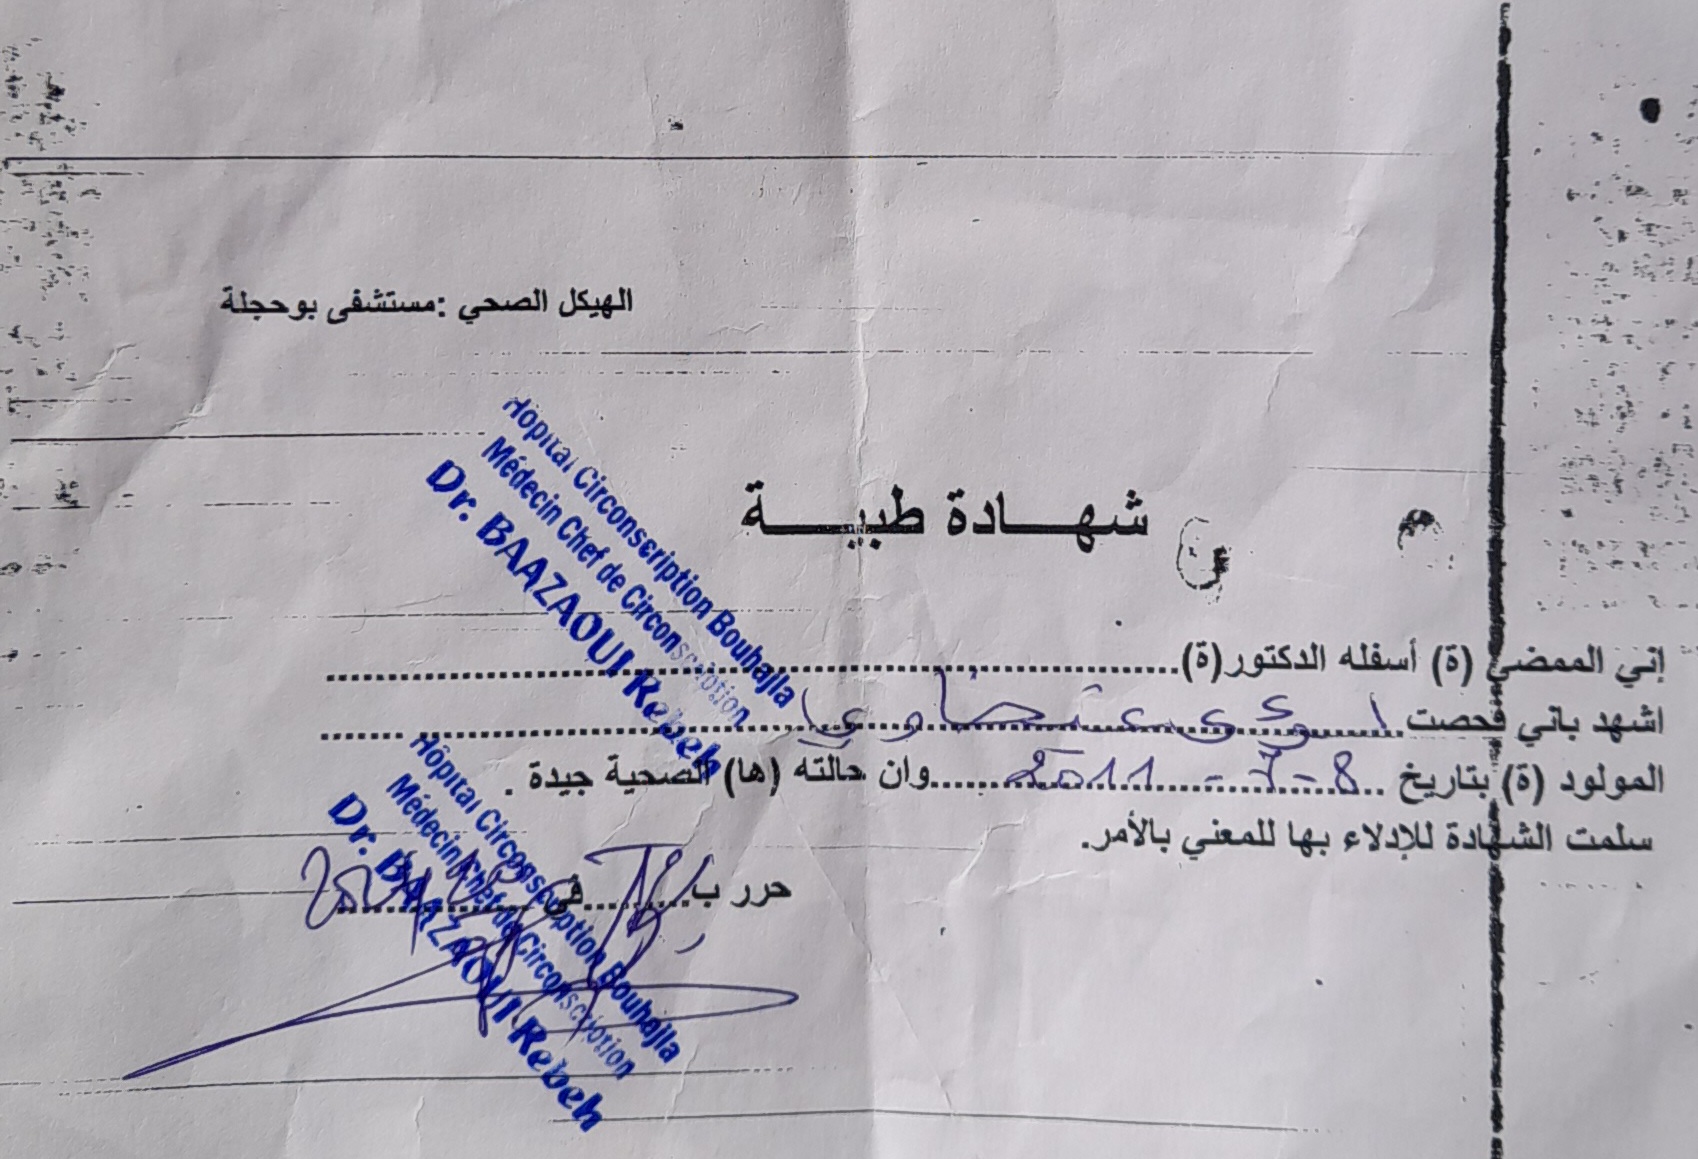 الهيكل الصحي :مستشفى بوحجلة
شهادة طبية
إني الممضي (ة) أسفله الدكتور(ة)
Hôpital Circonscription Bouhajla
Médecin Chef de Circonscription
Dr. BAAZAOUI Rebeh
اشهد باني فحصت
المولود (ة) بتاريخ 8-7-2011 وان حالته (ها) الصحية جيدة .
سلمت الشهادة للإدلاء بها للمعني بالأمر.
حرر ب في
Hôpital Circonscription Bouhajla
Médecin Chef de Circonscription
Dr. BAAZAOUI Rebeh